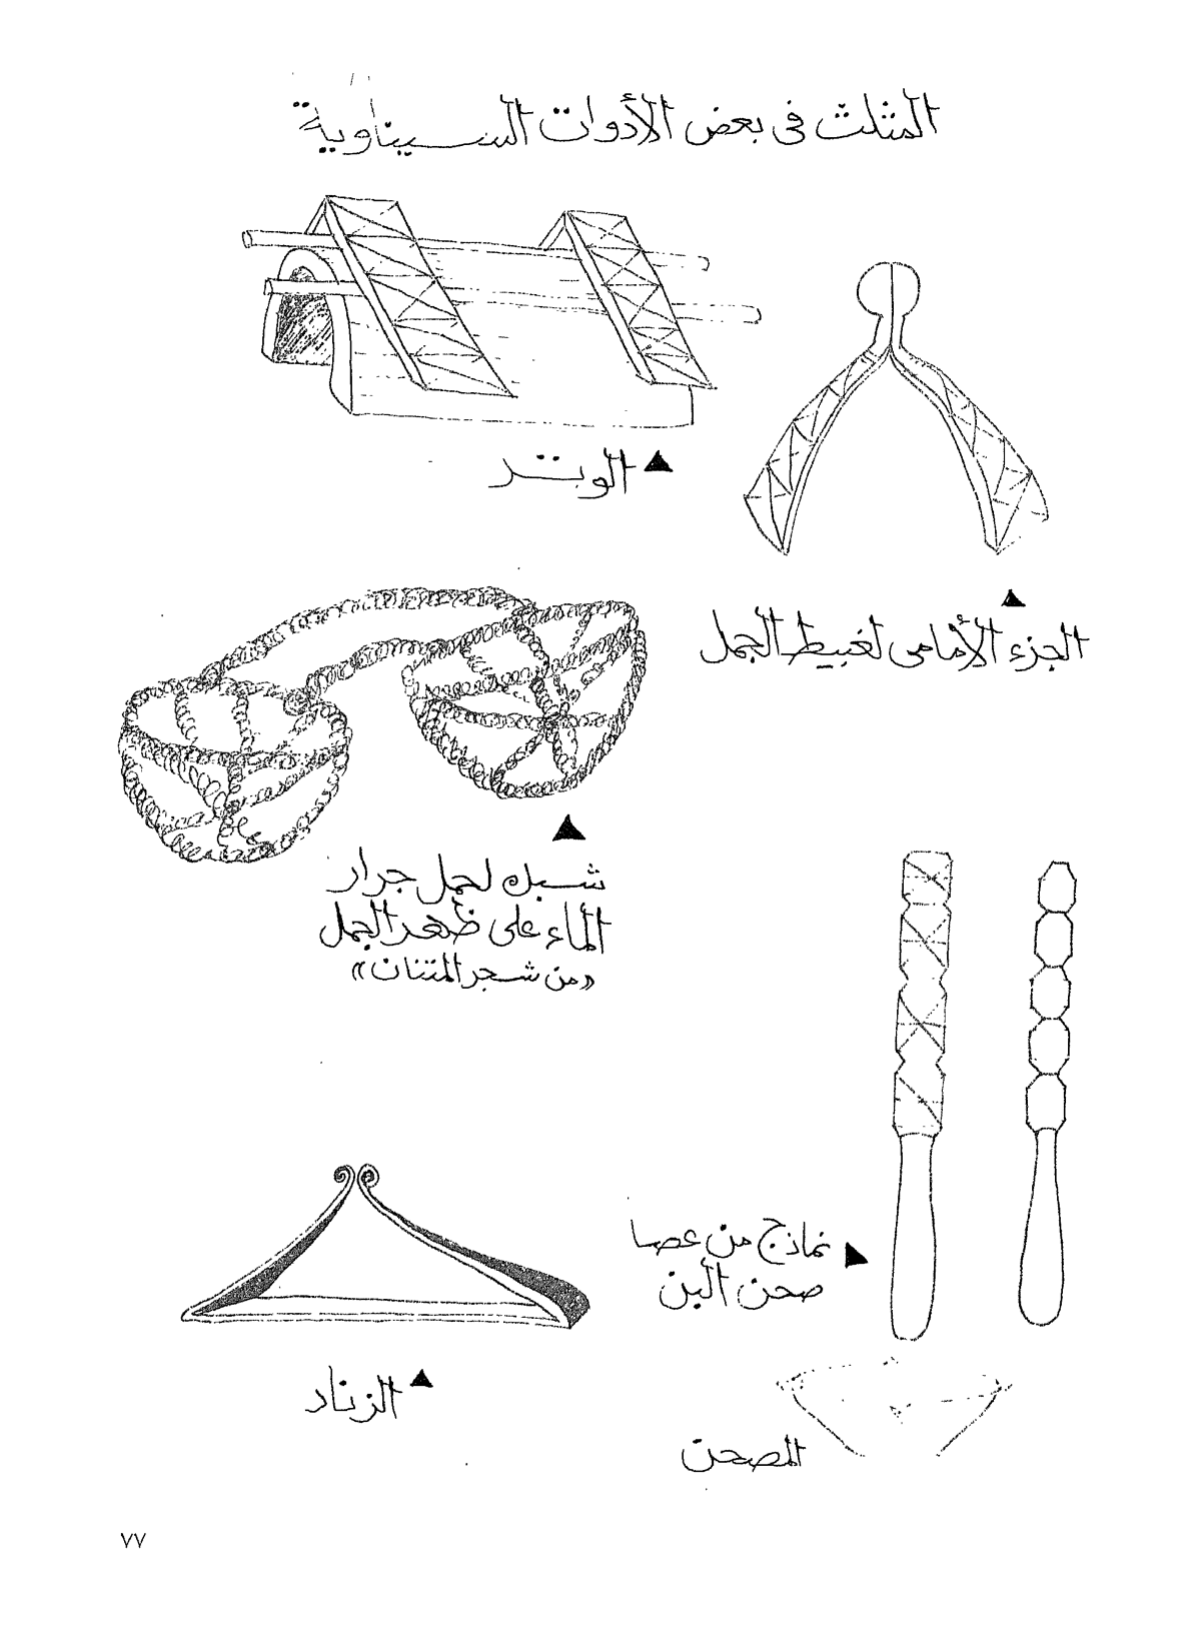 المثلث فى بعض الأدوات السيناوية
الوبتر
الجزء الأمامى لغبيط الجمل
شبك لحمل جرار
الماء على ظهر الجمل
«من شجر المتنان»
نماذج من عصا
صحن البن
الزناد
المصحن
٧٧